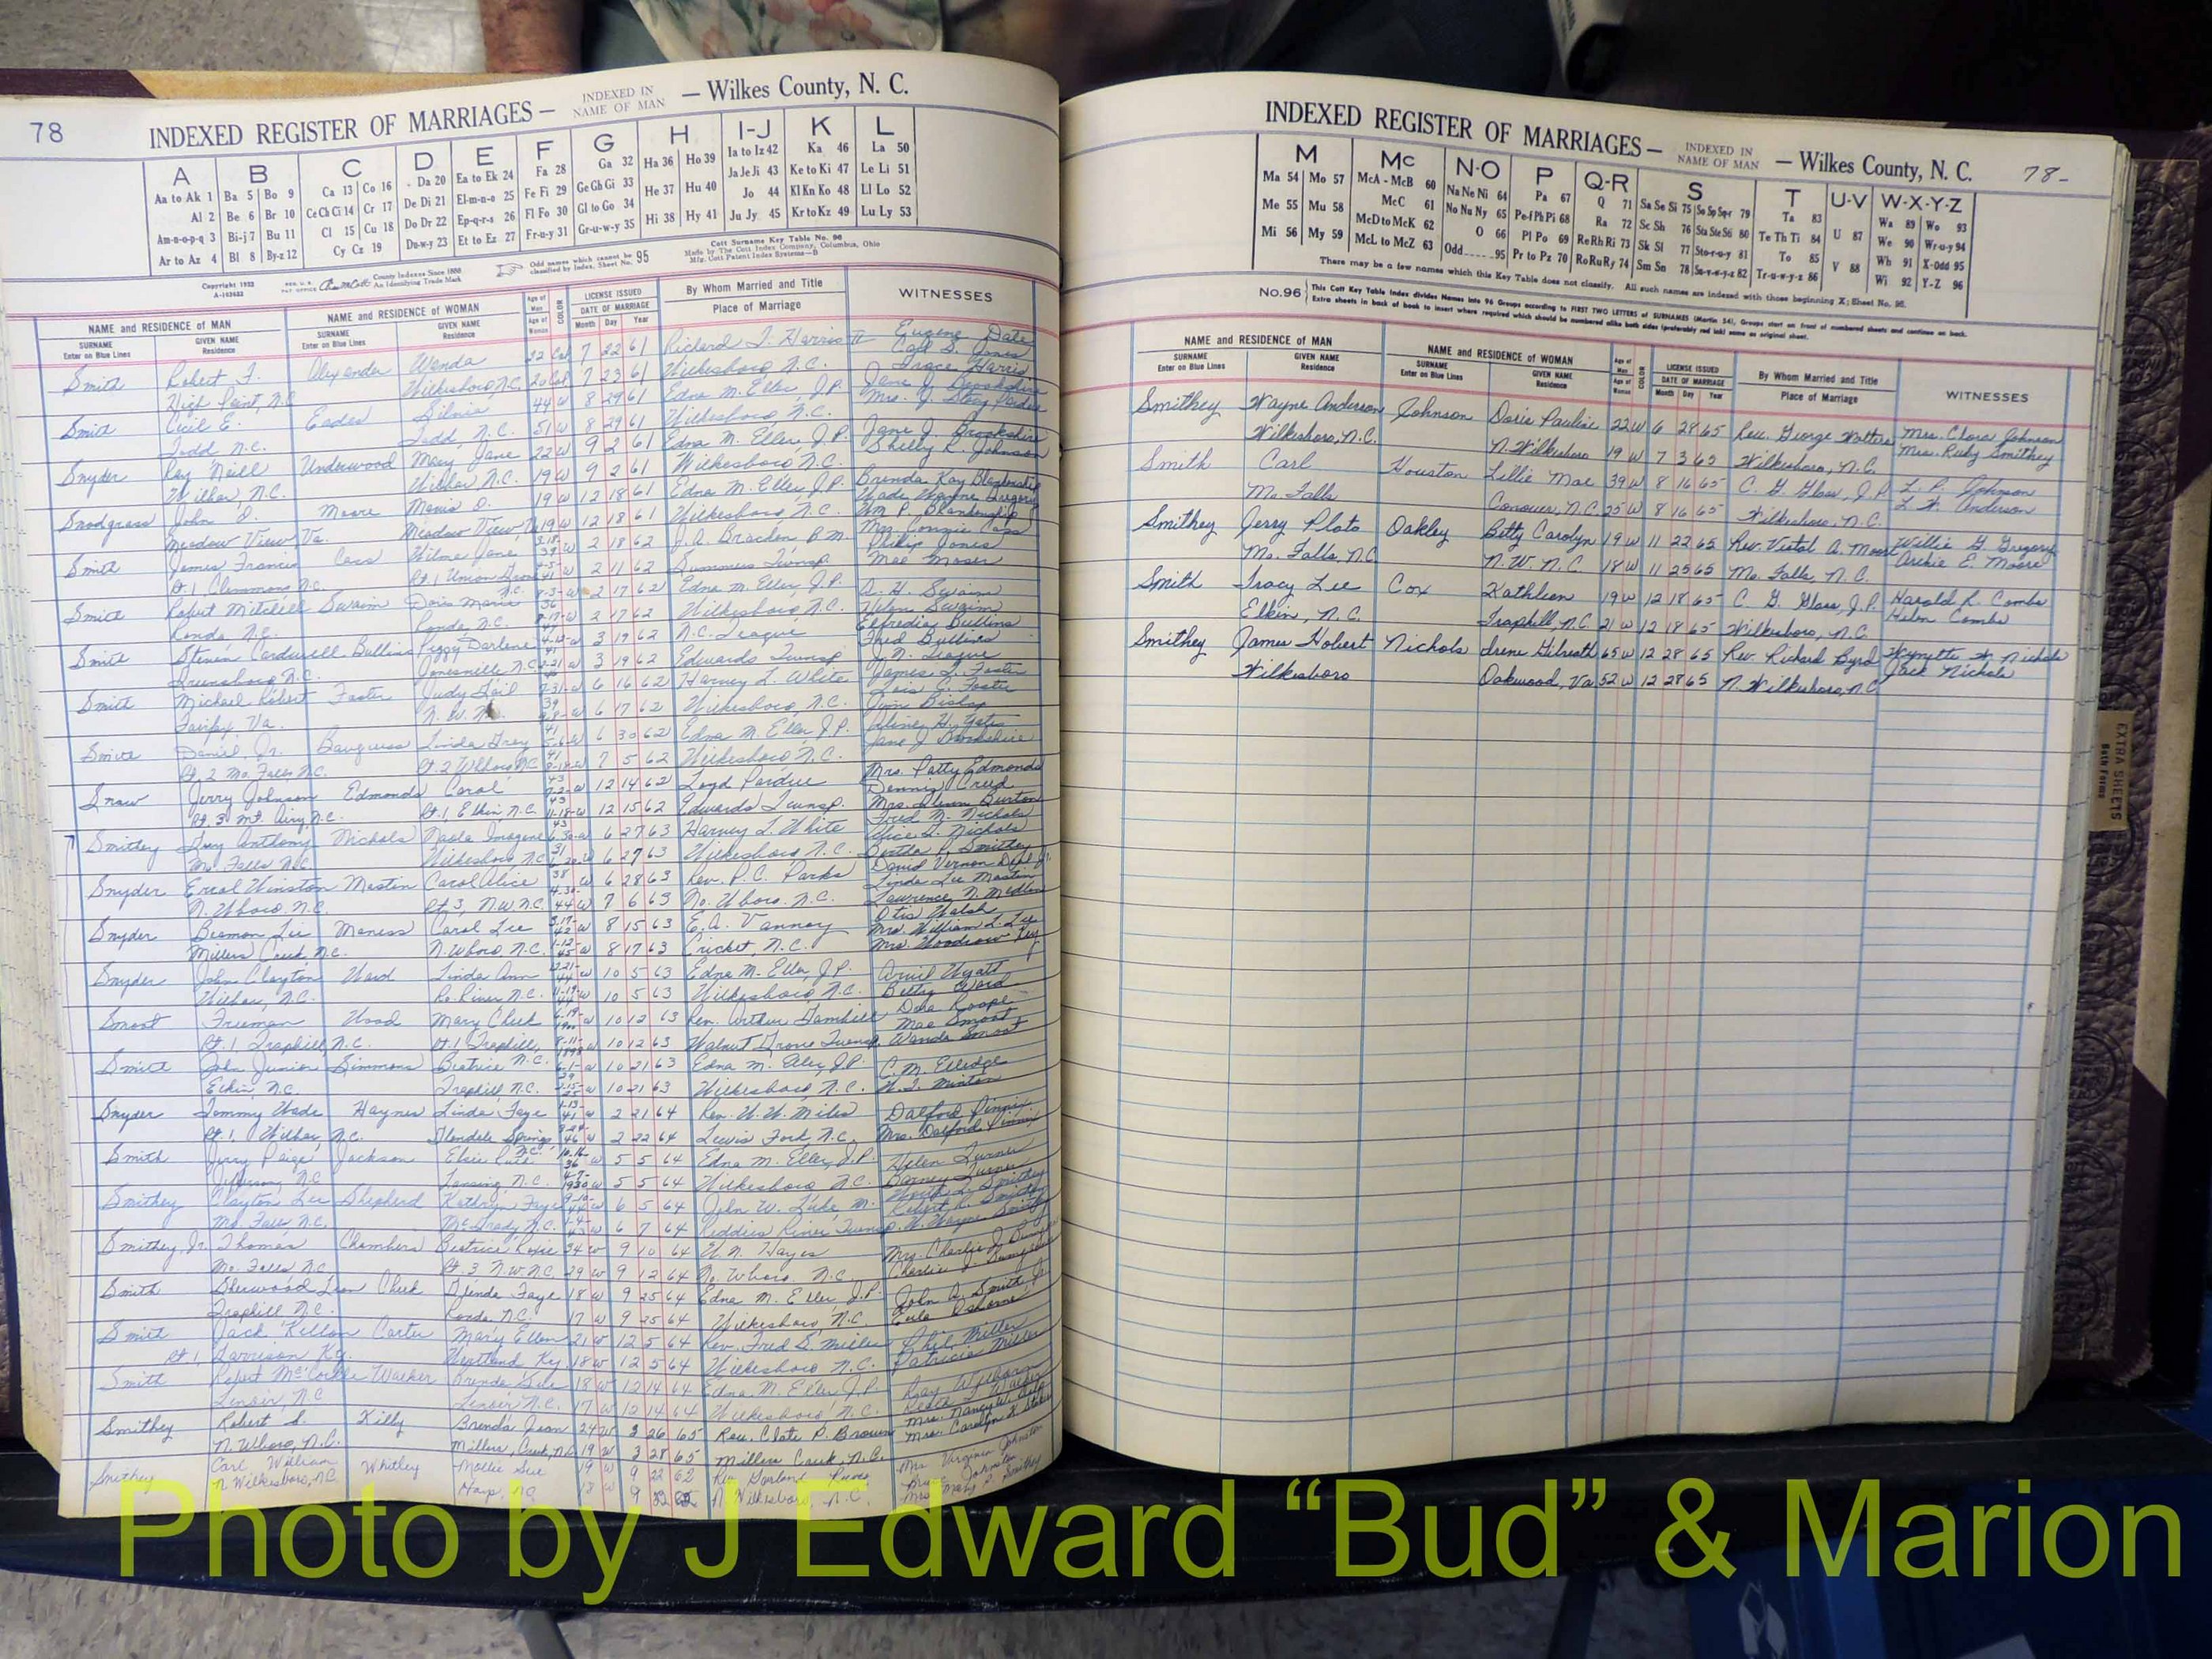 78
INDEXED REGISTER OF MARRIAGES — INDEXED IN NAME OF MAN — Wilkes County, N. C.
A B C D E F G H I-J K L
Aa to Ak 1 Ba 5 Bo 9 Ca 13 Co 16 Da 20 Ea to Ek 24 Fa 28 Ga 32 Ha 36 Ho 39 Ia to Iz 42 Ka 46 La 50
Al 2 Be 6 Br 10 Ce Ch Ci 14 Cr 17 De Di 21 El-m-n-o 25 Fe Fi 29 Ge Gh Gi 33 He 37 Hu 40 Ja Je Ji 43 Ke to Ki 47 Le Li 51
Am-n-o-p-q 3 Bi-j 7 Bu 11 Cl 15 Cu 18 Do Dr 22 Ep-q-r-s 26 Fl Fo 30 Gl to Go 34 Hi 38 Hy 41 Jo 44 Kl Kn Ko 48 Ll Lo 52
Ar to Az 4 Bl 8 By-z 12 Cy Cz 19 Du-w-y 23 Et to Ez 27 Fr-u-y 31 Gr-u-w-y 35 Ju Jy 45 Kr to Kz 49 Lu Ly 53
Copyright 1922
County Indexes Since 1888
An Identifying Trade Mark
Odd names which cannot be classified by Index, Sheet No. 95
Cott Surname Key Table No. 96
Made by The Cott Index Company, Columbus, Ohio
NAME and RESIDENCE OF MAN NAME and RESIDENCE OF WOMAN Age of Man Age of Woman COLOR LICENSE ISSUED DATE OF MARRIAGE By Whom Married and Title Place of Marriage WITNESSES
SURNAME Enter on Blue Lines GIVEN NAME Residence SURNAME Enter on Blue Lines GIVEN NAME Residence Month Day Year
Smith Robert F. Alexander Wanda 22 Col 7 22 61 Richard L. Harris Eugene
High Point, N.C. Wilkesboro, N.C. 20 Col 7 23 61 Wilkesboro N.C. Grace Harris
Smith Cecil E. Eades Silvia 44 W 8 29 61 Edna M. Eller, J.P. Jane J. Brookshire
Todd N.C. Todd, N.C. 51 W 8 29 61 Wilkesboro, N.C.
Snyder Ray Neill Underwood Mary Jane 22 W 9 2 61 Edna M. Eller, J.P. Jane J. Brookshire
Wilbar, N.C. Wilbar N.C. 19 W 9 2 61 Wilkesboro N.C. Shelby R. Johnson
Snodgrass John D. Moore Mavis D. 19 W 12 18 61 Edna M. Eller, J.P. Brenda Kay Blankenship
Meadow View, Va. Meadow View, 19 W 12 18 61 Wilkesboro, N.C. Wm P. Blankenship
Smith James Francis Cass Wilma Jane W 2 18 62 J.A. Bracken B.M. Philip Jones
Rt. 1 Clemmons N.C. W 2 11 62 Summers Twnsp. Mae Moser
Smith Robert Mitchell Swaim Doris Marie W 2 17 62 Edna M. Eller, J.P. D. H. Swaim
Ronda, N.C. Ronda N.C. W 2 17 62 Wilkesboro, N.C. Helen Swaim
Smith Steven Cardwell Bullins Peggy Darlene W 3 19 62 N.C. Teague Elfredia Bullins
Greensboro, N.C. Jonesville N.C. W 3 19 62 Edwards Twnsp Fred Bullins
Smith Michael Robert Foster Judy Gail W 6 16 62 Harvey L. White James L. Foster
Fairfax, Va. N.W. W 6 17 62 Wilkesboro, N.C. Lois E. Foster
Smith Daniel Jr. Bauguess Linda Grey W 6 30 62 Edna M. Eller J.P.
Rt. 2 Mo. Falls N.C. Rt. 2 W 7 5 62 Wilkesboro N.C. Jane J Brookshire
Snow Jerry Johnson Edmonds Carol W 12 14 62 Loyd Pardue Mrs. Patty Edmonds
Rt. 3 Mt. Airy, N.C. Rt. 1, Elkin N.C. W 12 15 62 Edwards Twnsp. Dennis Creed
Smithey Troy Anthony Nichols Naola Imogene W 6 27 63 Harvey L. White Fred N. Nichols
Mo. Falls N.C. Wilkesboro N.C. W 6 27 63 Wilkesboro N.C. Alice D. Nichols
Snyder Errol Winston Mastin Carol Alice W 6 28 63 Rev. P.C. Parks David Vernon
N. Wboro, N.C. Rt. 3, N.W. N.C. W 7 6 63 No. Wboro, N.C. Linda Lee Mastin
Snyder Beamon Lee Maness Carol Lee W 8 15 63 E.A. Vannoy Otis Walsh
Millers Creek, N.C. N. Wboro N.C. W 8 17 63 Cricket, N.C. Mrs. William L. Lee
Snyder John Clayton Ward Linda Ann W 10 5 63 Edna M. Eller, J.P. Arvil Wyatt
Wilbar, N.C. Ro. River N.C. W 10 5 63 Wilkesboro, N.C. Betty Ward
Smoot Freeman Wood Mary Cheek W 10 12 63 Rev. Arthur Gambill Mae Smoot
Rt. 1 Traphill, N.C. Rt. 1 Traphill, N.C. W 10 12 63 Walnut Grove Twnsp. Wanda Smoot
Smith John Junior Simmons Beatrice W 10 21 63 Edna M. Eller J.P. C. M. Elledge
Elkin N.C. Traphill N.C. W 10 21 63 Wilkesboro, N.C. W. J. Minton
Snyder Tommy Wade Haynes Linda Faye W 2 21 64 Rev. W. W. Miles Dalford Pinnix
Rt. 1, Wilbar, N.C. Glendale Springs, N.C. W 2 22 64 Lewis Fork, N.C. Mrs. Dalford Pinnix
Smith Jerry Paige Jackson Elsie Ruth W 5 5 64 Edna M. Eller, J.P. Helen Turner
Jefferson N.C. Lansing N.C. W 5 5 64 Wilkesboro N.C. Barney Turner
Smithey Clayton Lee Shepherd Kathryn Faye W 6 5 64 John W. Luke, M.
Mo. Falls N.C. McGrady, N.C. W 6 7 64 Reddies River Twnsp. W. Wayne Smithey
Smithey Jr. Thomas Chambers Beatrice Roxie 34 W 9 10 64 U. N. Hayes Mrs. Charlie J.
Mo. Falls N.C. Rt. 3 N.W. N.C. 29 W 9 12 64 No. Wboro N.C. Charlie J.
Smith Sherwood Leon Cheek Glenda Faye 18 W 9 25 64 Edna M. Eller J.P. John A. Smith Jr.
Traphill N.C. Ronda N.C. 17 W 9 25 64 Wilkesboro, N.C. Eula Osborne
Smith Jack Kellon Carter Mary Ellen 21 W 12 5 64 Rev. Fred S. Miller Phil Miller
Rt 1, Garrison Ky. Ky 18 W 12 5 64 Wilkesboro N.C. Patricia Miller
Smith Robert Walker Brenda Sue 18 W 12 14 64 Edna M. Eller J.P.
Lenoir, N.C. Lenoir N.C. 17 W 12 14 64 Wilkesboro, N.C.
Smithey Robert S. Kilby Brenda Jean 24 W 3 26 65 Rev. Clate P. Brown Mrs. Nancy
N. Wboro, N.C. Millers Creek, N.C. 19 W 3 28 65 Millers Creek N.C. Mrs. Carolyn K.
Smithey Carl William Whitley Mollie Sue 19 W 9 22 62 Rev Garland Mrs Virginia Johnston
N. Wilkesboro, N.C. Hays, N.C. 18 W 9 22 62 N. Wilkesboro, N.C. Mrs Mary S. Smithey
INDEXED REGISTER OF MARRIAGES — INDEXED IN NAME OF MAN — Wilkes County, N. C. 78-
M Mc N-O P Q-R S T U-V W-X-Y-Z
Ma 54 Mo 57 McA - McB 60 Na Ne Ni 64 Pa 67 Q 71 Sa Se Si 75 So Sp Sq-r 79 Ta 83 U 87 Wa 89 Wo 93
Me 55 Mu 58 McC 61 No Nu Ny 65 Pe-f Ph Pi 68 Ra 72 Sc Sh 76 Sta Ste Sti 80 Te Th Ti 84 V 88 We 90 Wr-u-y 94
Mi 56 My 59 McD to McK 62 O 66 Pl Po 69 Re Rh Ri 73 Sk Sl 77 Sto-r-u-y 81 To 85 Wh 91 X-Odd 95
McL to McZ 63 Odd 95 Pr to Pz 70 Ro Ru Ry 74 Sm Sn 78 Su-v-w-y-z 82 Tr-u-w-y-z 86 Wi 92 Y-Z 96
There may be a few names which this Key Table does not classify. All such names are indexed with those beginning X; Sheet No. 95.
No. 96 This Cott Key Table Index divides Names into 96 Groups according to FIRST TWO LETTERS of SURNAMES (Martin 54). Groups start on front of numbered sheets and continue on back.
Extra sheets in back of book to insert where required which should be numbered alike both sides (preferably red ink) same as original sheet.
NAME and RESIDENCE OF MAN NAME and RESIDENCE OF WOMAN Age of Man Age of Woman COLOR LICENSE ISSUED DATE OF MARRIAGE By Whom Married and Title Place of Marriage WITNESSES
SURNAME Enter on Blue Lines GIVEN NAME Residence SURNAME Enter on Blue Lines GIVEN NAME Residence Month Day Year
Smithey Wayne Anderson Johnson Doris Pauline 22 W 6 28 65 Rev. George Walters Mrs. Chora Johnson
Wilkesboro, N.C. N. Wilkesboro 19 W 7 3 65 Wilkesboro, N.C. Mrs. Ruby Smithey
Smith Carl Houston Lillie Mae 39 W 8 16 65 C. G. Glass, J.P. L. P. Johnson
Mo. Falls Conover, N.C. 25 W 8 16 65 Wilkesboro, N.C. L. W. Anderson
Smithey Jerry Plato Oakley Betty Carolyn 19 W 11 22 65 Rev. Vestal A. Moore Willie G. Gregory
Mo. Falls, N.C. N. W. N.C. 18 W 11 25 65 Mo. Falls, N.C. Archie E. Moore
Smith Tracy Lee Cox Kathleen 19 W 12 18 65 C. G. Glass, J.P. Harold L. Combs
Elkin, N.C. Traphill N.C. 21 W 12 18 65 Wilkesboro, N.C. Helen Combs
Smithey James Hobert Nichols Irene Gilreath 65 W 12 28 65 Rev. Richard Byrd Wynette W. Nichols
Wilkesboro Oakwood, Va 52 W 12 28 65 N. Wilkesboro, N.C. Jack Nichols
EXTRA SHEETS
Both Forms
Photo by J Edward “Bud” & Marion